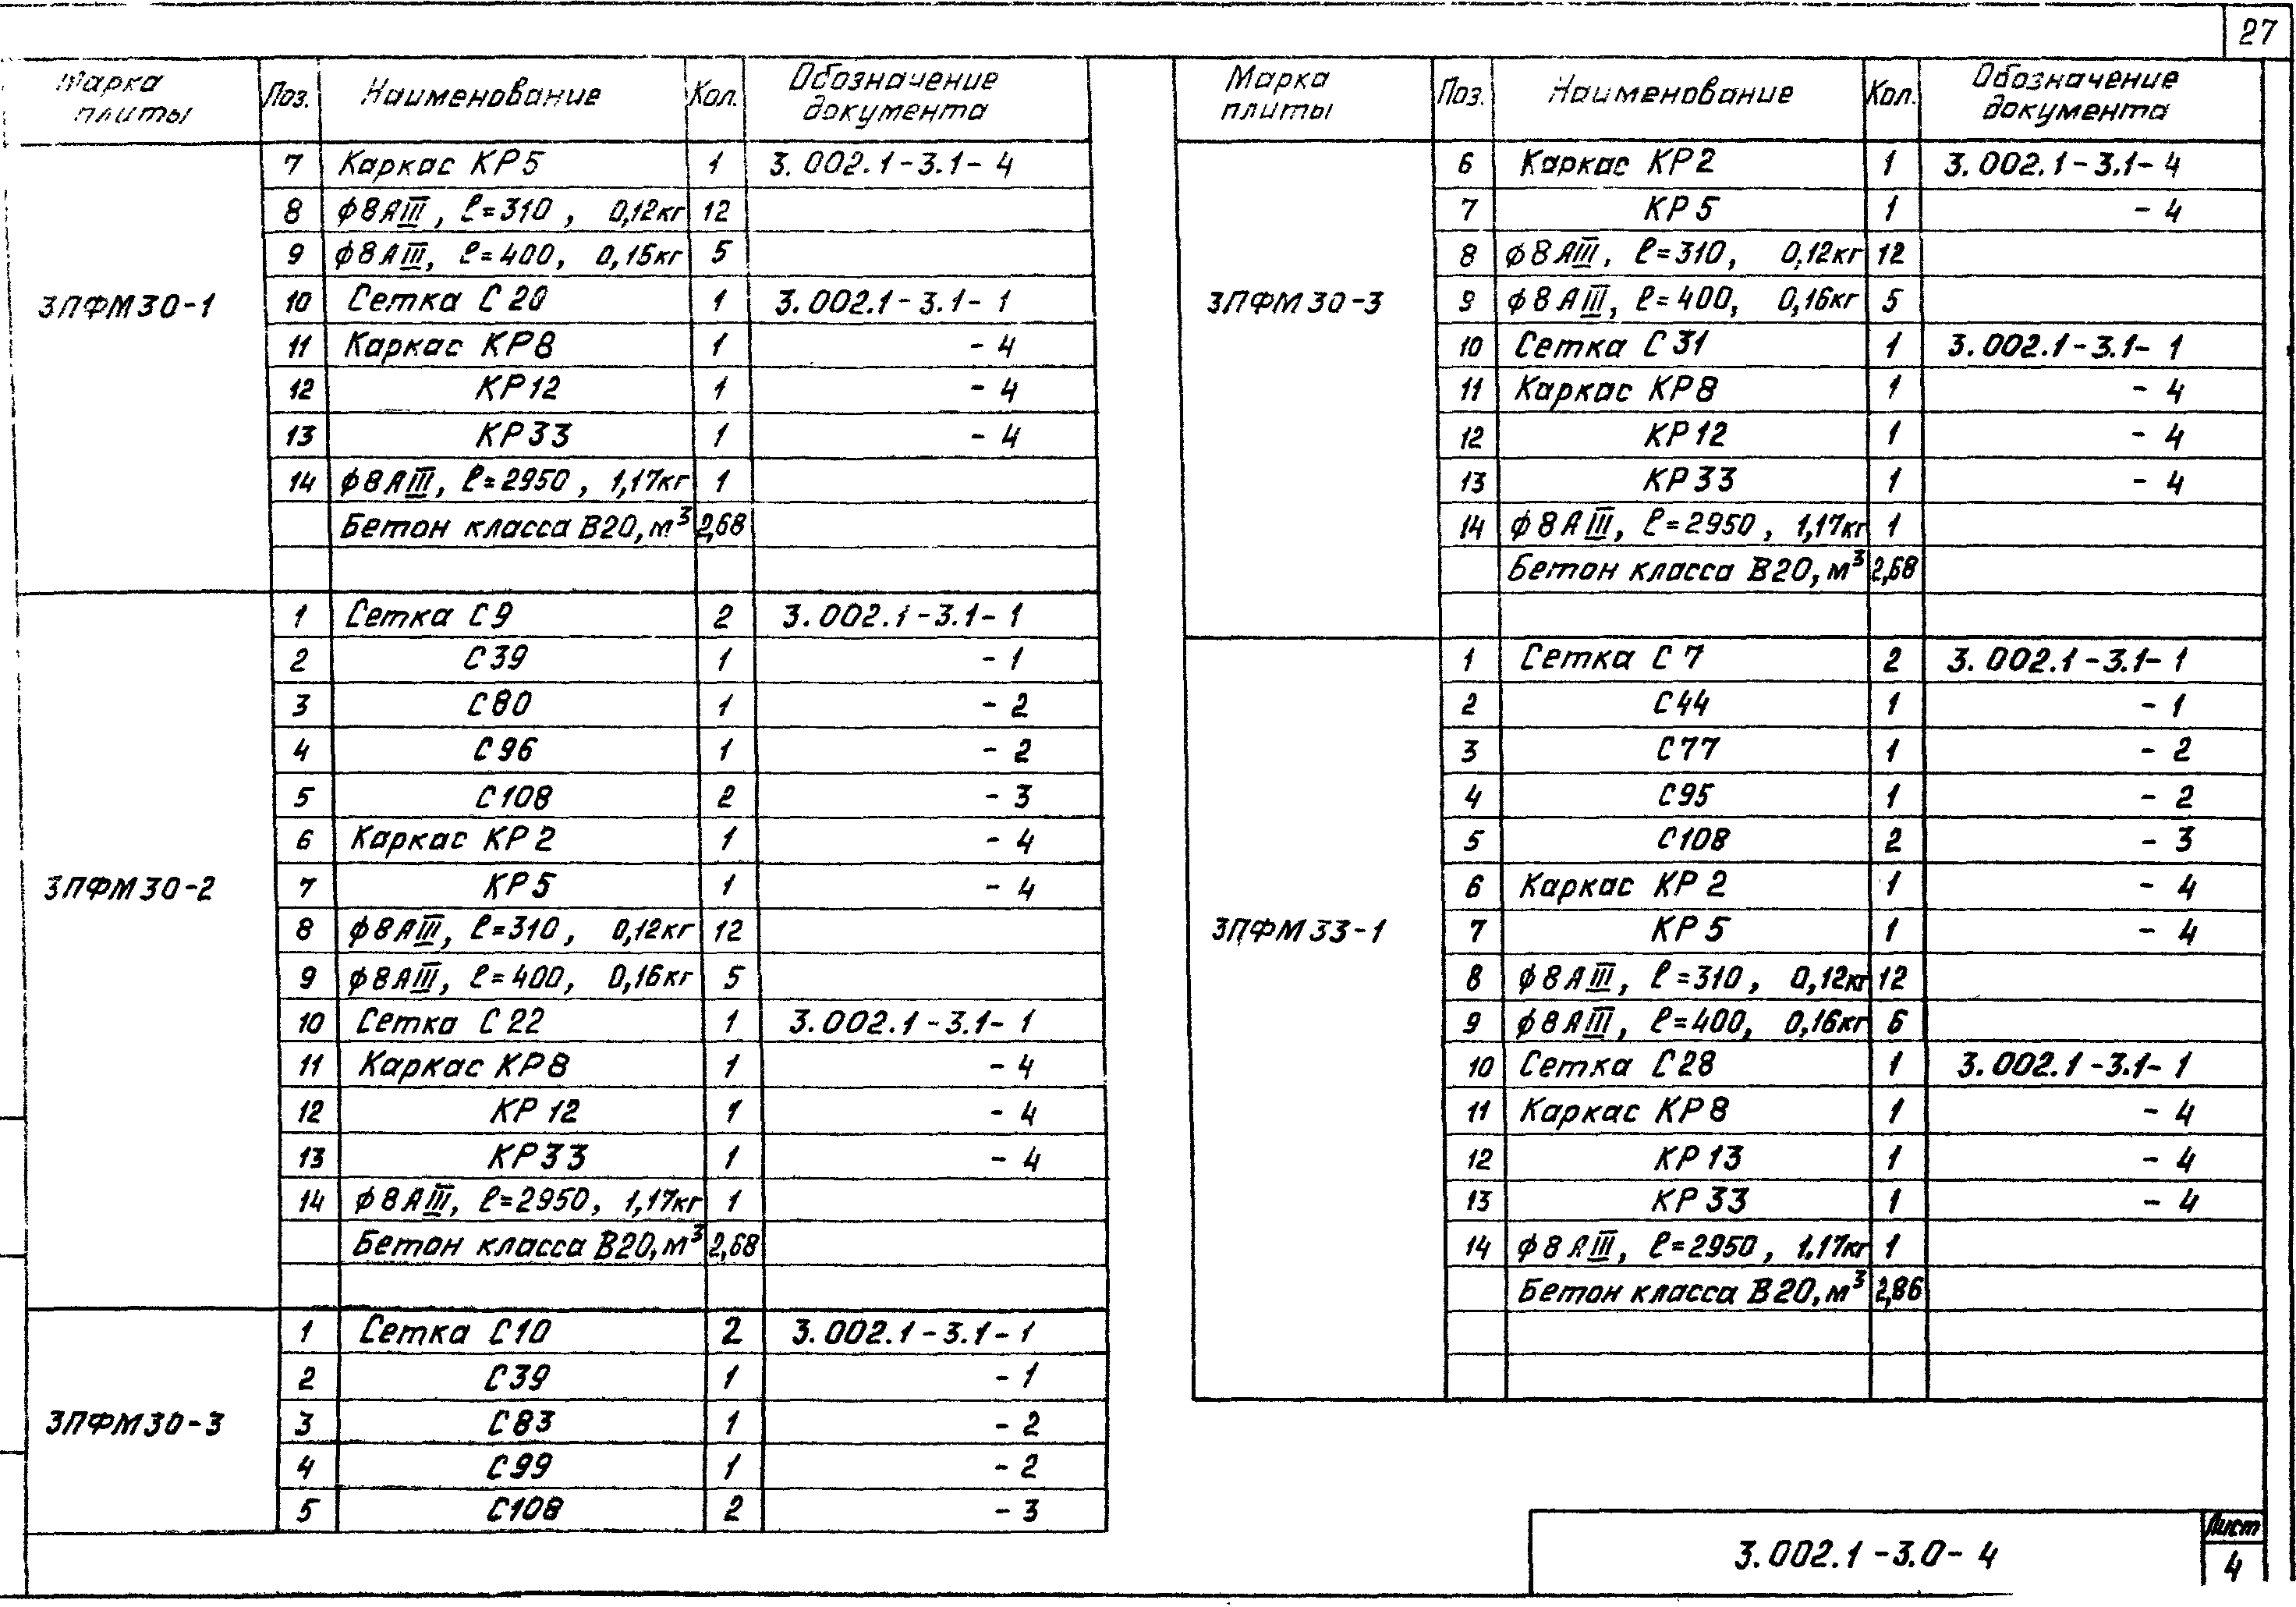 27
Марка плиты Поз. Наименование Кол. Обозначение документа
3ПФМ30-1
7 Каркас КР5 1 3.002.1-3.1-4
8 ф8АIII, ℓ=310, 0,12кг 12
9 ф8АIII, ℓ=400, 0,15кг 5
10 Сетка С20 1 3.002.1-3.1-1
11 Каркас КР8 1 -4
12 КР12 1 -4
13 КР33 1 -4
14 ф8АIII, ℓ=2950, 1,17кг 1
Бетон класса В20, м³ 2,68
3ПФМ30-2
1 Сетка С9 2 3.002.1-3.1-1
2 С39 1 -1
3 С80 1 -2
4 С96 1 -2
5 С108 2 -3
6 Каркас КР2 1 -4
7 КР5 1 -4
8 ф8АIII, ℓ=310, 0,12кг 12
9 ф8АIII, ℓ=400, 0,16кг 5
10 Сетка С22 1 3.002.1-3.1-1
11 Каркас КР8 1 -4
12 КР12 1 -4
13 КР33 1 -4
14 ф8АIII, ℓ=2950, 1,17кг 1
Бетон класса В20, м³ 2,68
3ПФМ30-3
1 Сетка С10 2 3.002.1-3.1-1
2 С39 1 -1
3 С83 1 -2
4 С99 1 -2
5 С108 2 -3
Марка плиты Поз. Наименование Кол. Обозначение документа
3ПФМ30-3
6 Каркас КР2 1 3.002.1-3.1-4
7 КР5 1 -4
8 ф8АIII, ℓ=310, 0,12кг 12
9 ф8АIII, ℓ=400, 0,16кг 5
10 Сетка С31 1 3.002.1-3.1-1
11 Каркас КР8 1 -4
12 КР12 1 -4
13 КР33 1 -4
14 ф8АIII, ℓ=2950, 1,17кг 1
Бетон класса В20, м³ 2,68
3ПФМ33-1
1 Сетка С7 2 3.002.1-3.1-1
2 С44 1 -1
3 С77 1 -2
4 С95 1 -2
5 С108 2 -3
6 Каркас КР2 1 -4
7 КР5 1 -4
8 ф8АIII, ℓ=310, 0,12кг 12
9 ф8АIII, ℓ=400, 0,16кг 6
10 Сетка С28 1 3.002.1-3.1-1
11 Каркас КР8 1 -4
12 КР13 1 -4
13 КР33 1 -4
14 ф8АIII, ℓ=2950, 1.17кг 1
Бетон класса В20, м³ 2,86
3.002.1-3.0-4
Лист
4